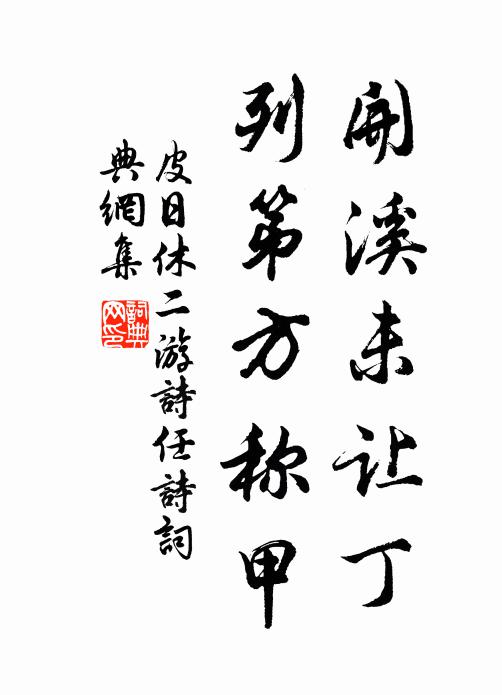 開溪未让丁
列第方称甲
皮日休二游詩任詩詞
典網集
詞典網印